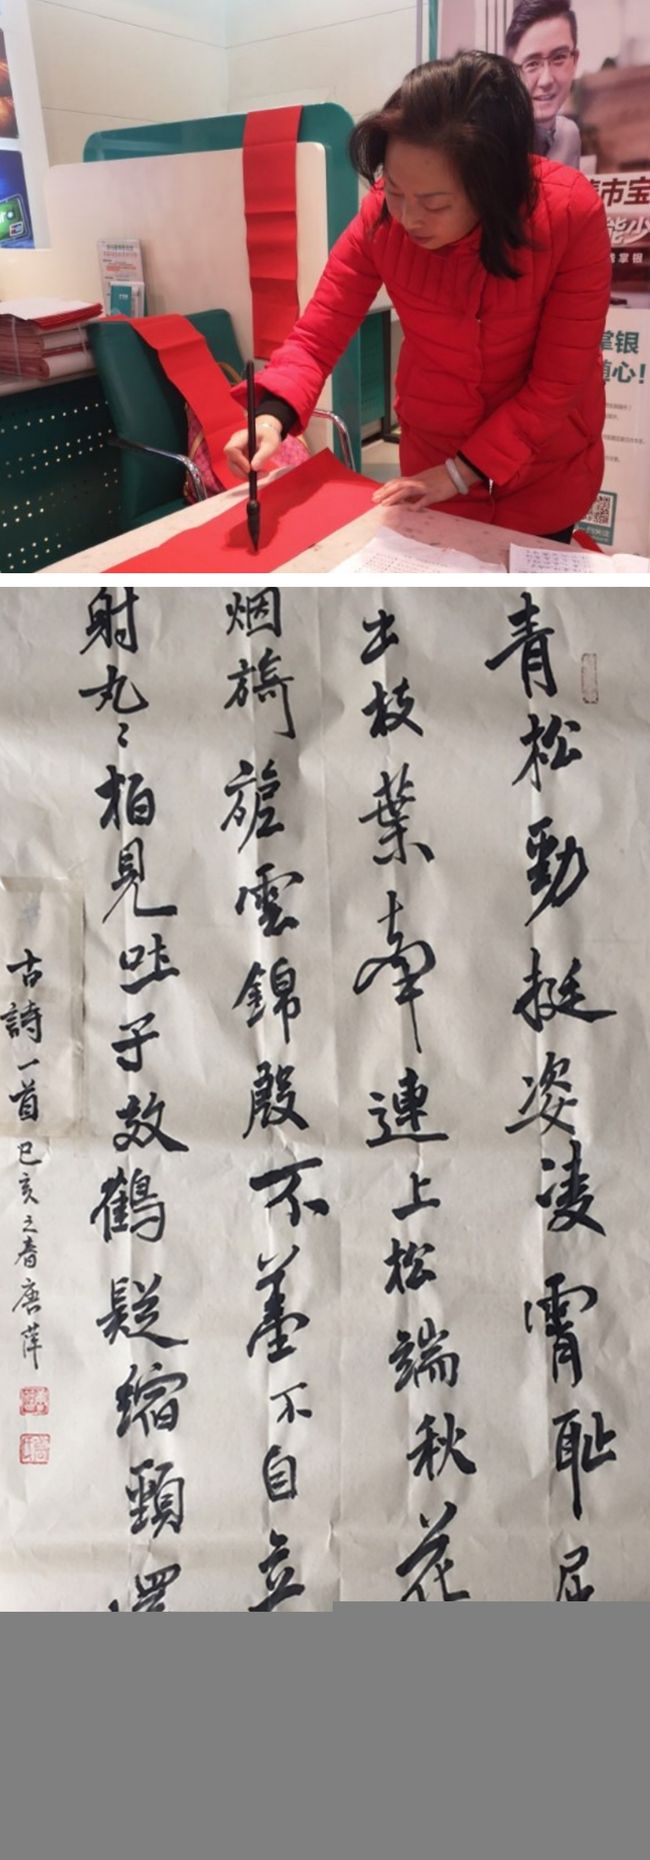 市宝
能少
掌银
掌银
随心!
青松勁挺姿凌霄恥屈
出枝葉牽連上松端秋花
烟旖旎雲錦殷不羞不自立
射丸〻柏見吐子效鶴疑縮頸還
古詩一首 己亥之春唐萍